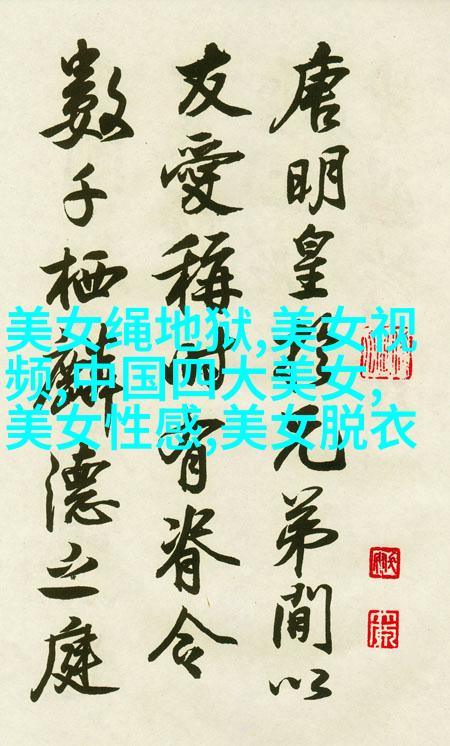 唐明皇於兄弟間以
友愛稱有脊令
數千栖麟德之庭
美女绳地狱,美女视
频,中国四大美女,
美女性感,美女脱衣